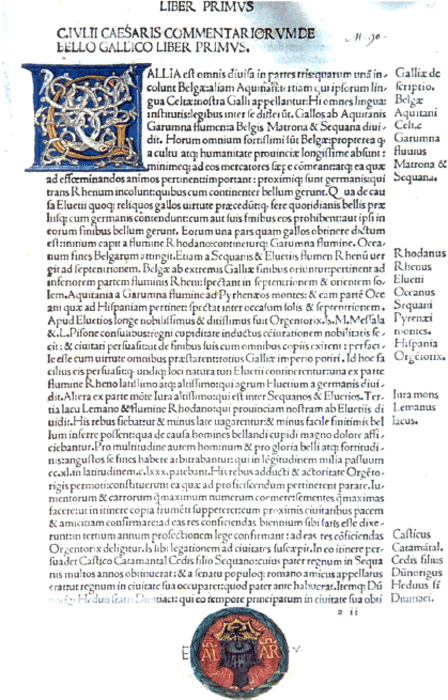 LIBER PRIMVS
C. IVLII CAESARIS COMMENTARIORVM DE
BELLO GALLICO LIBER PRIMVS.
GALLIA est omnis diuisa in partes tris: quarum unã in-
colunt Belgæ: aliam Aquitani: tertiam qui ipsorum lin-
gua Celtæ nostra Galli appellantur: Hi omnes lingua:
institutis: legibus inter se differũt. Gallos ab Aquitanis
Garumna flumen: a Belgis Matrona & Sequana diui-
dit. Horum omnium fortissimi sũt Belgæ: propterea q
a cultu atq; humanitate prouinciæ longissime absunt:
minimeq; ad eos mercatores sæpe cõmeant: atq; ea quæ
ad effœminandos animos pertinent important: proximiq; sunt germanis: qui
trans Rhenum incolunt: quibus cum continenter bellum gerunt. Qua de cau
sa Eluetii quoq; reliquos gallos uirtute præcedũt: q; fere quotidianis bellis præ
liisq; cum germanis contendunt: cum aut suis finibus eos prohibent: aut ipsi in
eorum finibus bellum gerunt. Eorum una pars quam gallos obtinere dictum
est: initium capit a flumine Rhodano: contineturq; Garumna flumine. Ocea
num fines Belgarum attingit. Etiam a Sequanis & Eluetiis flumen Rhenũ uer
git ad septentrionem. Belgæ ab extremis Galliæ finibus oriuntur: pertinent ad
inferiorem partem fluminis Rheni: spectant in septentrionem & orientem so
lem. Aquitania a Garumna flumine ad Pyrhenæos montes: & eam partẽ Oce
ani quæ ad Hispaniam pertinet: spectat inter occasum solis & septentrionem.
Apud Eluetios longe nobilissimus & ditissimus fuit Orgentorix. Is. M. Messala
& L. Pisone consulibus: regni cupiditate inductus cõiurationem nobilitatis fe
cit: & ciuitati persuasit: ut de finibus suis cum omnibus copiis exirent: perfaci-
le esse cum uirtute omnibus præstarent: totius Galliæ imperio potiri. Id hoc fa
cilius eis persuasit: q; undiq; loci natura tuti Eluetii continerentur: una ex parte
flumine Rheno latissimo atq; altissimo: qui agrum Eluetium a germanis diui-
dit. Altera ex parte mõte Iura altissimo: qui est inter Sequanos & Eluetios. Ter-
tia lacu Lemano & flumine Rhodano: qui prouinciam nostram ab Eluetiis di
uidit. His rebus fiebat: ut & minus late uagarentur: & minus facile finitimis bel
lum inferre possent: qua de causa homines bellandi cupidi magno dolore affi-
ciebantur. Pro multitudine autem hominum & pro gloria belli atq; fortitudi-
nis: angustos se fines habere arbitrabantur: qui in lõgitudinem milia passuum
cc.xl. in latitudinem. c.lxxx. patebant. His rebus adducti & actoritate Orgẽto-
rigis permoti: constituerunt ea quæ ad proficiscendum pertinerent parare. Iu-
mentorum & carrorum q̃maximum numerum coemere: sementes q̃maximas
facere: ut in itinere copia frumẽti suppeteret: cum proximis ciuitatibus pacem
& amicitiam confirmare: ad eas res conficiendas biennium sibi satis esse dixe-
runt: in tertium annum profectionem lege confirmant: ad eas res cõficiendas
Orgentorix deligitur. Is sibi legationem ad ciuitates suscæpit. In eo itinere per-
suadet Castico Catamantal Cedis filio Sequano: cuius pater regnum in Sequa
nis multos annos obtinuerat: & a senatu populoq; romano amicus appellatus
erat: ut regnum in ciuitate sua occuparet: quod pater ante habuerat. Itemq; Dũ
Heduo Diuitiaci: qui eo tempore principatum in ciuitate sua obti
a ii
Galliæ de
scriptio.
Belgæ
Aquitani
Celtæ
Garumna
fluuius
Matrona &
Sequana.
Rhodanus
Rhenus
Eluetii
Oceanus
Sequani
Pyrenæi
montes.
Hispania
Orgẽtorix.
Iura mons
Lemanus
lacus.
Casticus
Catamãtal.
Cedis filius
Dũnorigus
Heduus fī
Diuitiaci.